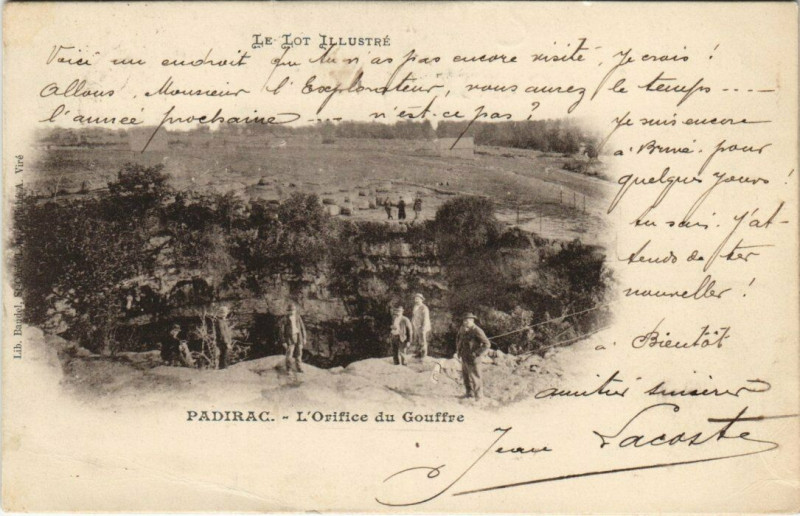 LE LOT ILLUSTRÉ
Voici un endroit que tu n'as pas encore visité, je crois !
Allons, Monsieur l'Explorateur, vous aurez le temps ----
l'année prochaine --- n'est-ce pas ?
Je suis encore
à Brive pour
quelques jours !
tu sais. J'at-
tends de tes
nouvelles !
à Bientôt
amitiés sincères
Jean Lacoste
PADIRAC. - L'Orifice du Gouffre
Lib. Baudel, A. Viré